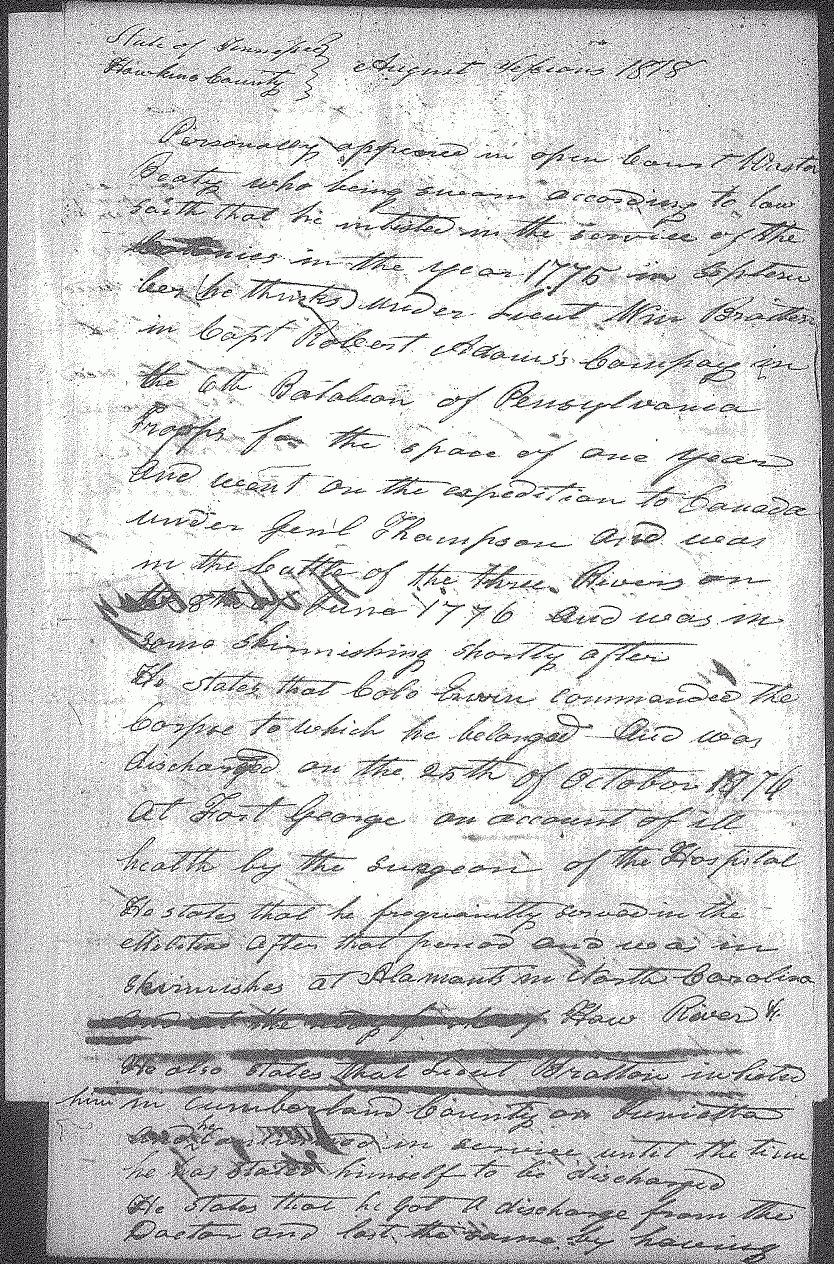 State of Tennessee
Hawkins County } August Sessions 1818
Personally appeared in open Court
Beaty who being sworn according to law
saith that he inlisted in the service of the
Colonies in the year 1775 in Septem
ber (he thinks) under Lieut Wm Bratten
in Capt Robert Adams's Compay in
the 6th Batalion of Pensylvania
Troops for the space of one year
and went on the expedition to Canada
under Genl Thompson and was
in the battle of the three Rivers on
the 8th of June 1776 and was in
some skirmishing shortly after
He states that Colo Erwin commanded the
Corpse to which he belonged and was
discharged on the 25th of October 1776
at Fort George on account of ill
health by the Surgeon of the Hospital
He states that he frequently served in the
Militia after that period and was in
skirmishes at Alamants in North Carolina
and at the Haw River &
He also states that Lieut Bratton inlisted
him in Cumberland County on Juniatta
and he continued in service until the time
he has stated himself to be discharged
He states that he got a discharge from the
Doctor and lost the same by having